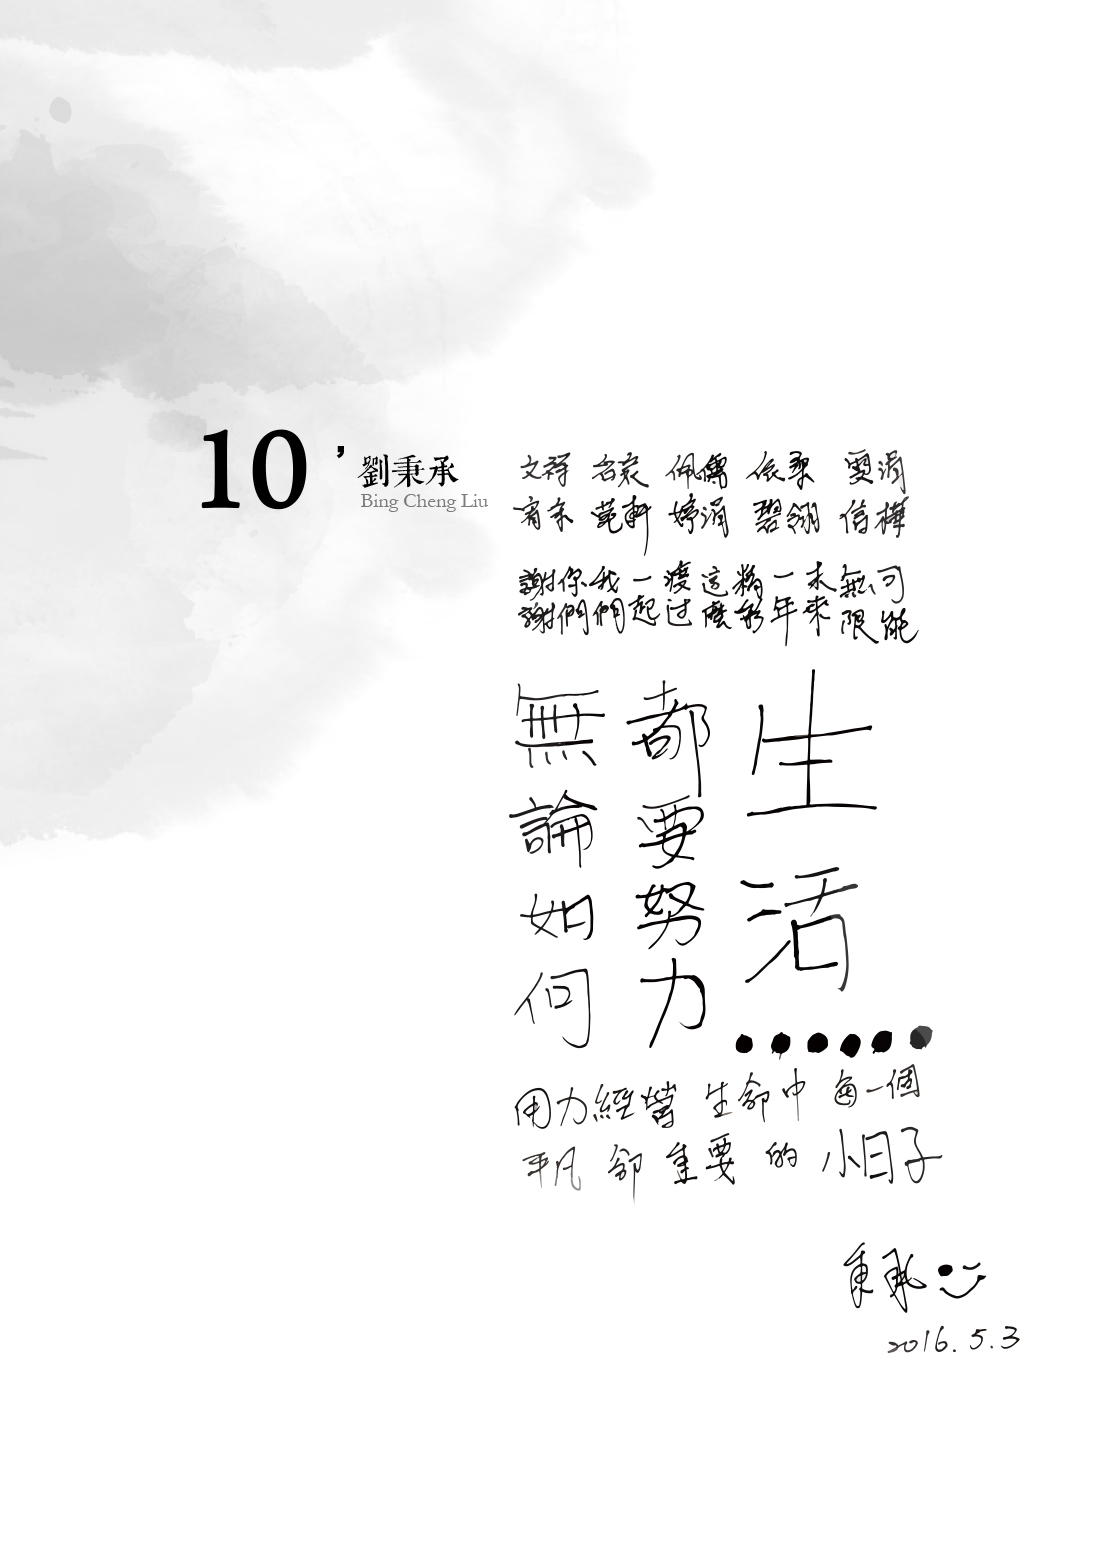 10,
劉秉承
Bing Cheng Liu
文祥 佩儒 依柔 雯涓
菀軒 婷涓 碧翎 信樺
謝謝
你們
我們
一起
渡过
這麼
精彩
一年
未來
無限
可能
無論如何
都要努力
生活
......
用力經營 生命中 每一個
平凡 卻 重要 的 小日子
秉承
2016.5.3